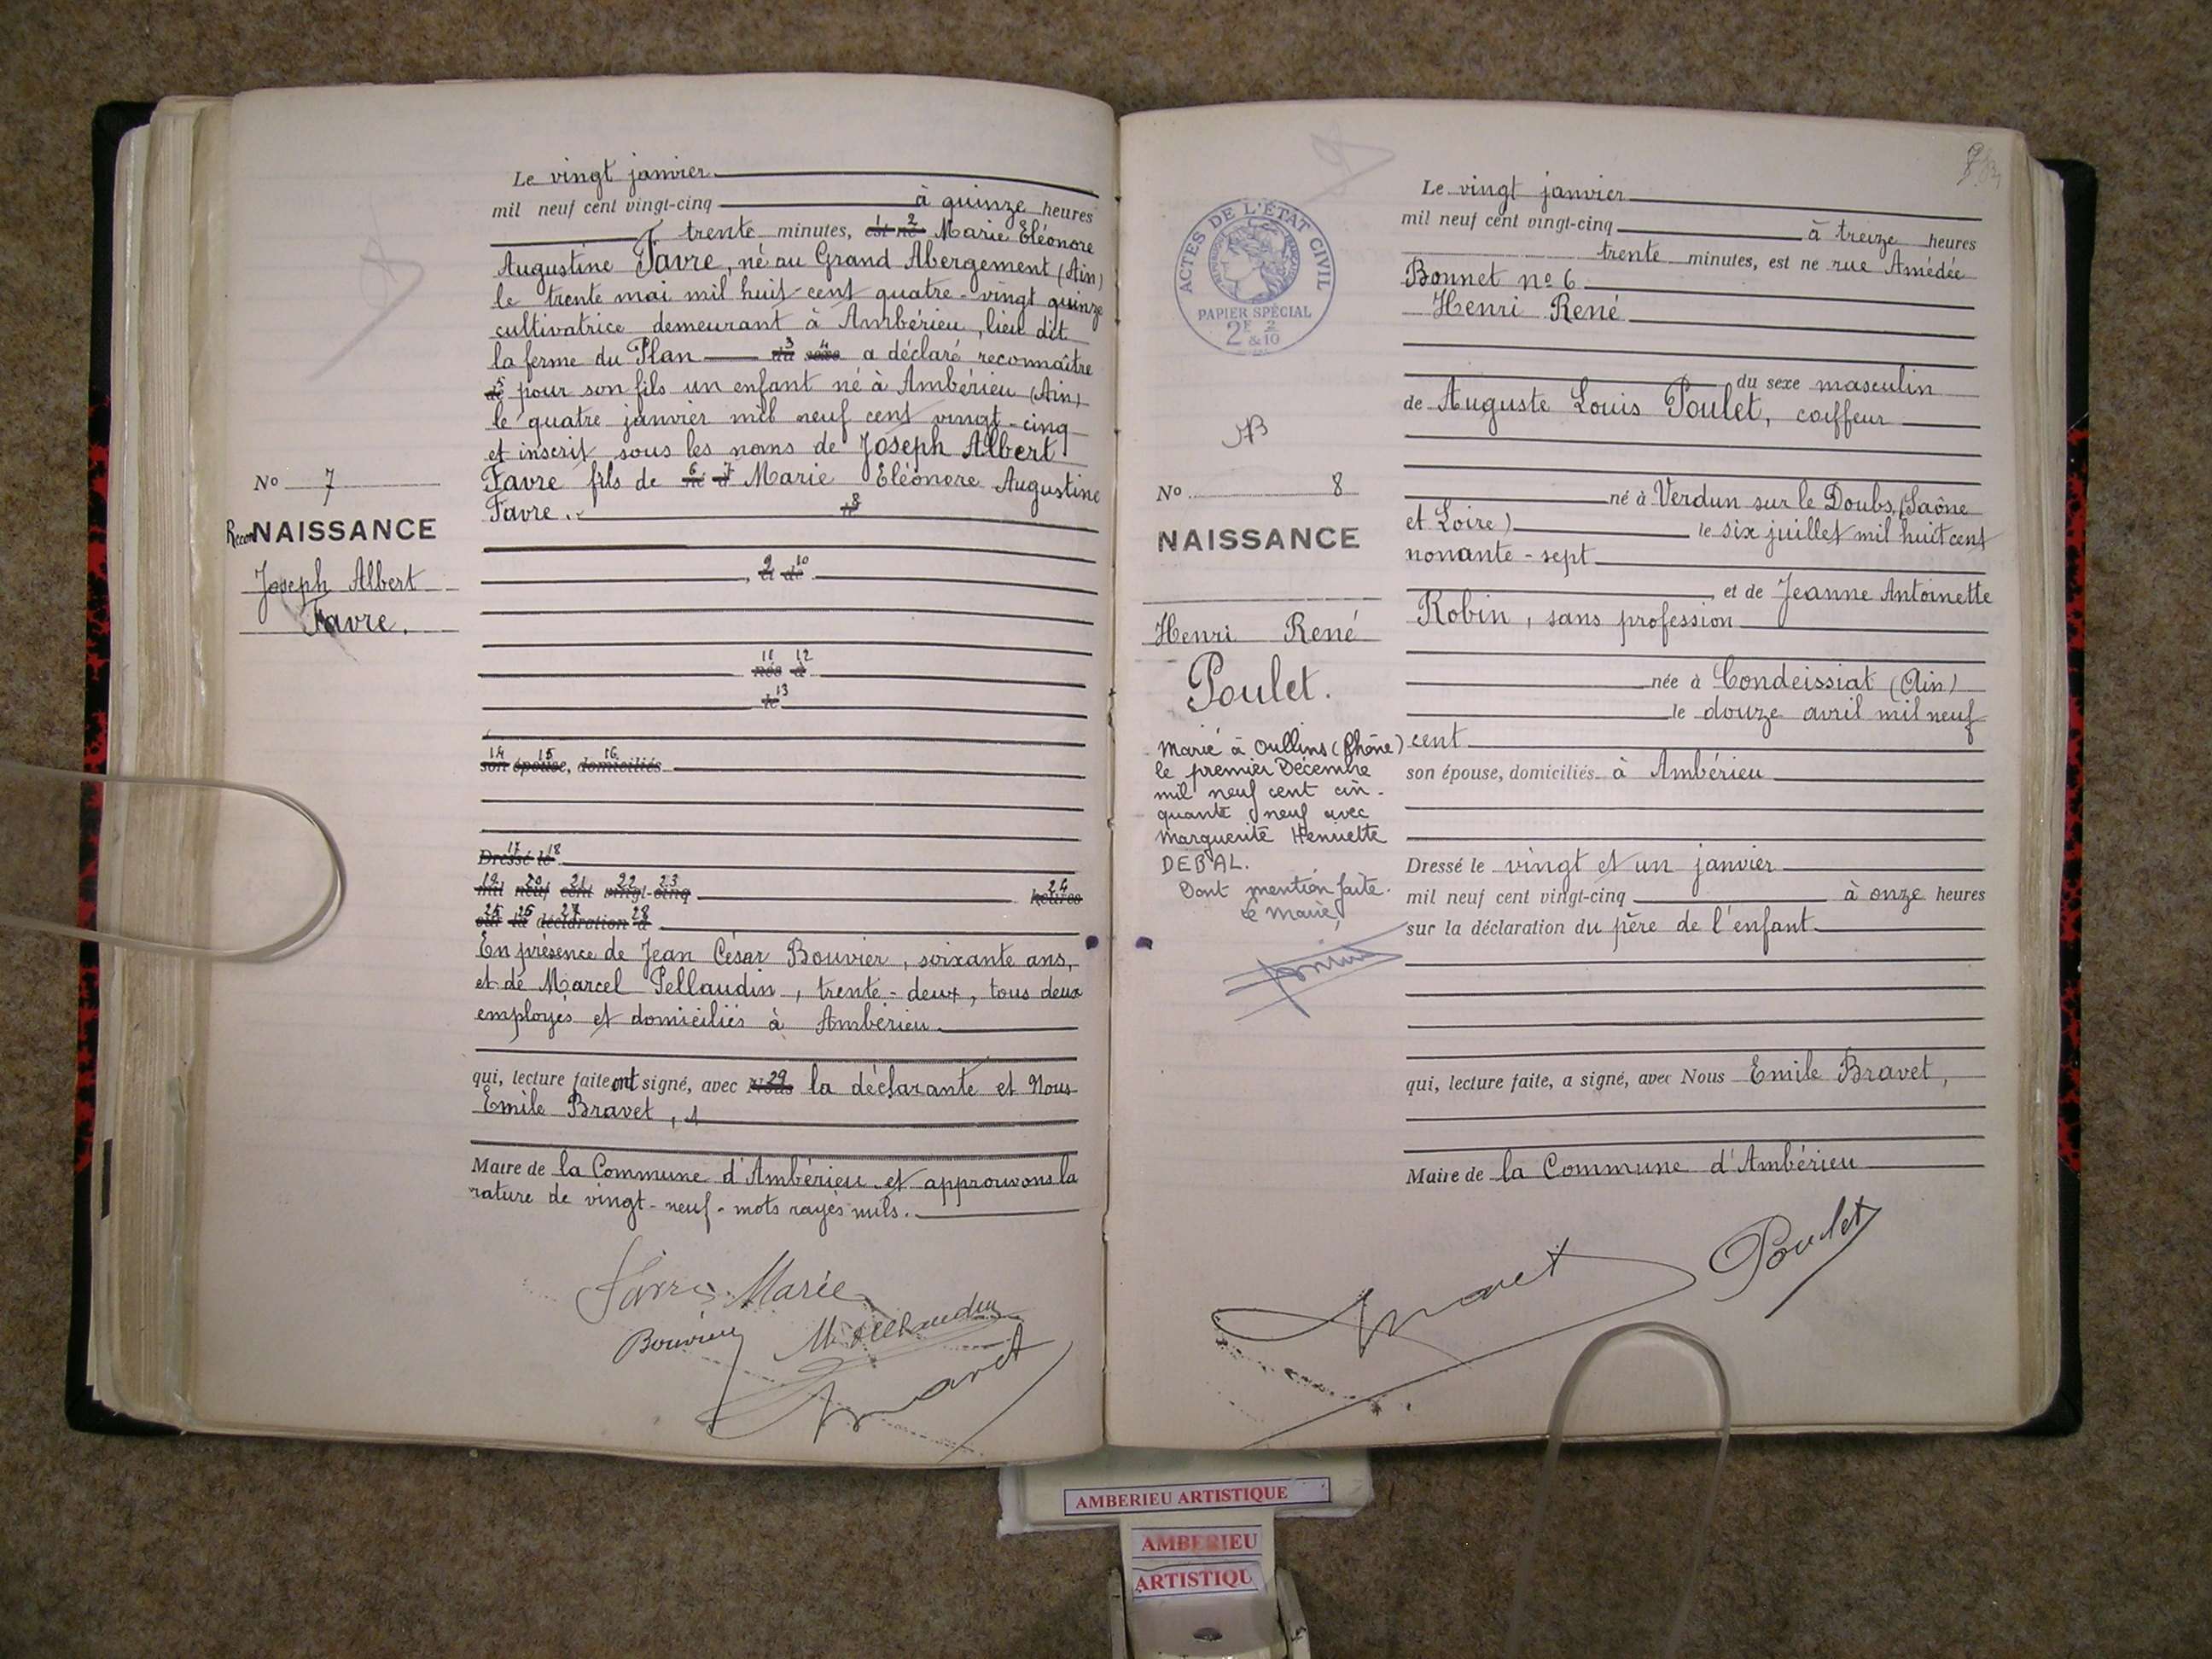 Le vingt janvier
mil neuf cent vingt-cinq à quinze heures
trente minutes, est né 2 Marie Eléonore
Augustine Favre, né au Grand Abergement (Ain)
le trente mai mil huit-cent quatre-vingt quinze
cultivatrice demeurant à Ambérieu, lieu dit
la ferme du Plan du 3 sexe 4 a déclaré reconnaître
de 5 pour son fils un enfant né à Ambérieu (Ain)
le quatre janvier mil neuf cent vingt-cinq
et inscrit sous les noms de Joseph Albert
Favre fils de né 6 à 7 Marie Eléonore Augustine
Favre. le 8
No 7
Recon NAISSANCE
Joseph Albert
Favre.
, et 9 de 10
nés 11 à 12
le 13
son 14 épouse 15, domiciliés 16
Dressé 17 le 18
mil 19 neuf 20 cent 21 vingt 22-cinq 23 heures 24
sur 25 la 26 déclaration 27 d 28
En présence de Jean César Bouvier, soixante ans,
et de Marcel Pellaudin, trente-deux, tous deux
employés et domiciliés à Ambérieu
qui, lecture faite ont signé, avec Nous 29 la déclarante et Nous
Emile Bravet,
Maire de la Commune d'Ambérieu et approuvons la
rature de vingt-neuf-mots rayés nuls.
Favre Marie
Bouvier M. Pellaudin
Bravet
ACTES DE L'ÉTAT CIVIL
RÉPUBLIQUE FRANÇAISE
PAPIER SPÉCIAL
2F & 2/10
No 8
NAISSANCE
Henri René
Poulet.
Marié à Oullins (Rhône)
le premier Décembre
mil neuf cent cin-
quante neuf avec
Marguerite Henriette
DEBAL.
Dont mention faite.
Le Maire,
Le vingt janvier
mil neuf cent vingt-cinq à treize heures
trente minutes, est né rue Amédée
Bonnet no 6
Henri René
du sexe masculin
de Auguste Louis Poulet, coiffeur
né à Verdun sur le Doubs, (Saône
et Loire) le six juillet mil huit cent
nonante-sept
et de Jeanne Antoinette
Robin, sans profession
née à Condeissiat (Ain)
le douze avril mil neuf
cent
son épouse, domiciliés à Ambérieu
Dressé le vingt et un janvier
mil neuf cent vingt-cinq à onze heures
sur la déclaration du père de l'enfant
qui, lecture faite, a signé, avec Nous Emile Bravet,
Maire de la Commune d'Ambérieu
Bravet Poulet
AMBERIEU ARTISTIQUE
AMBERIEU
ARTISTIQU